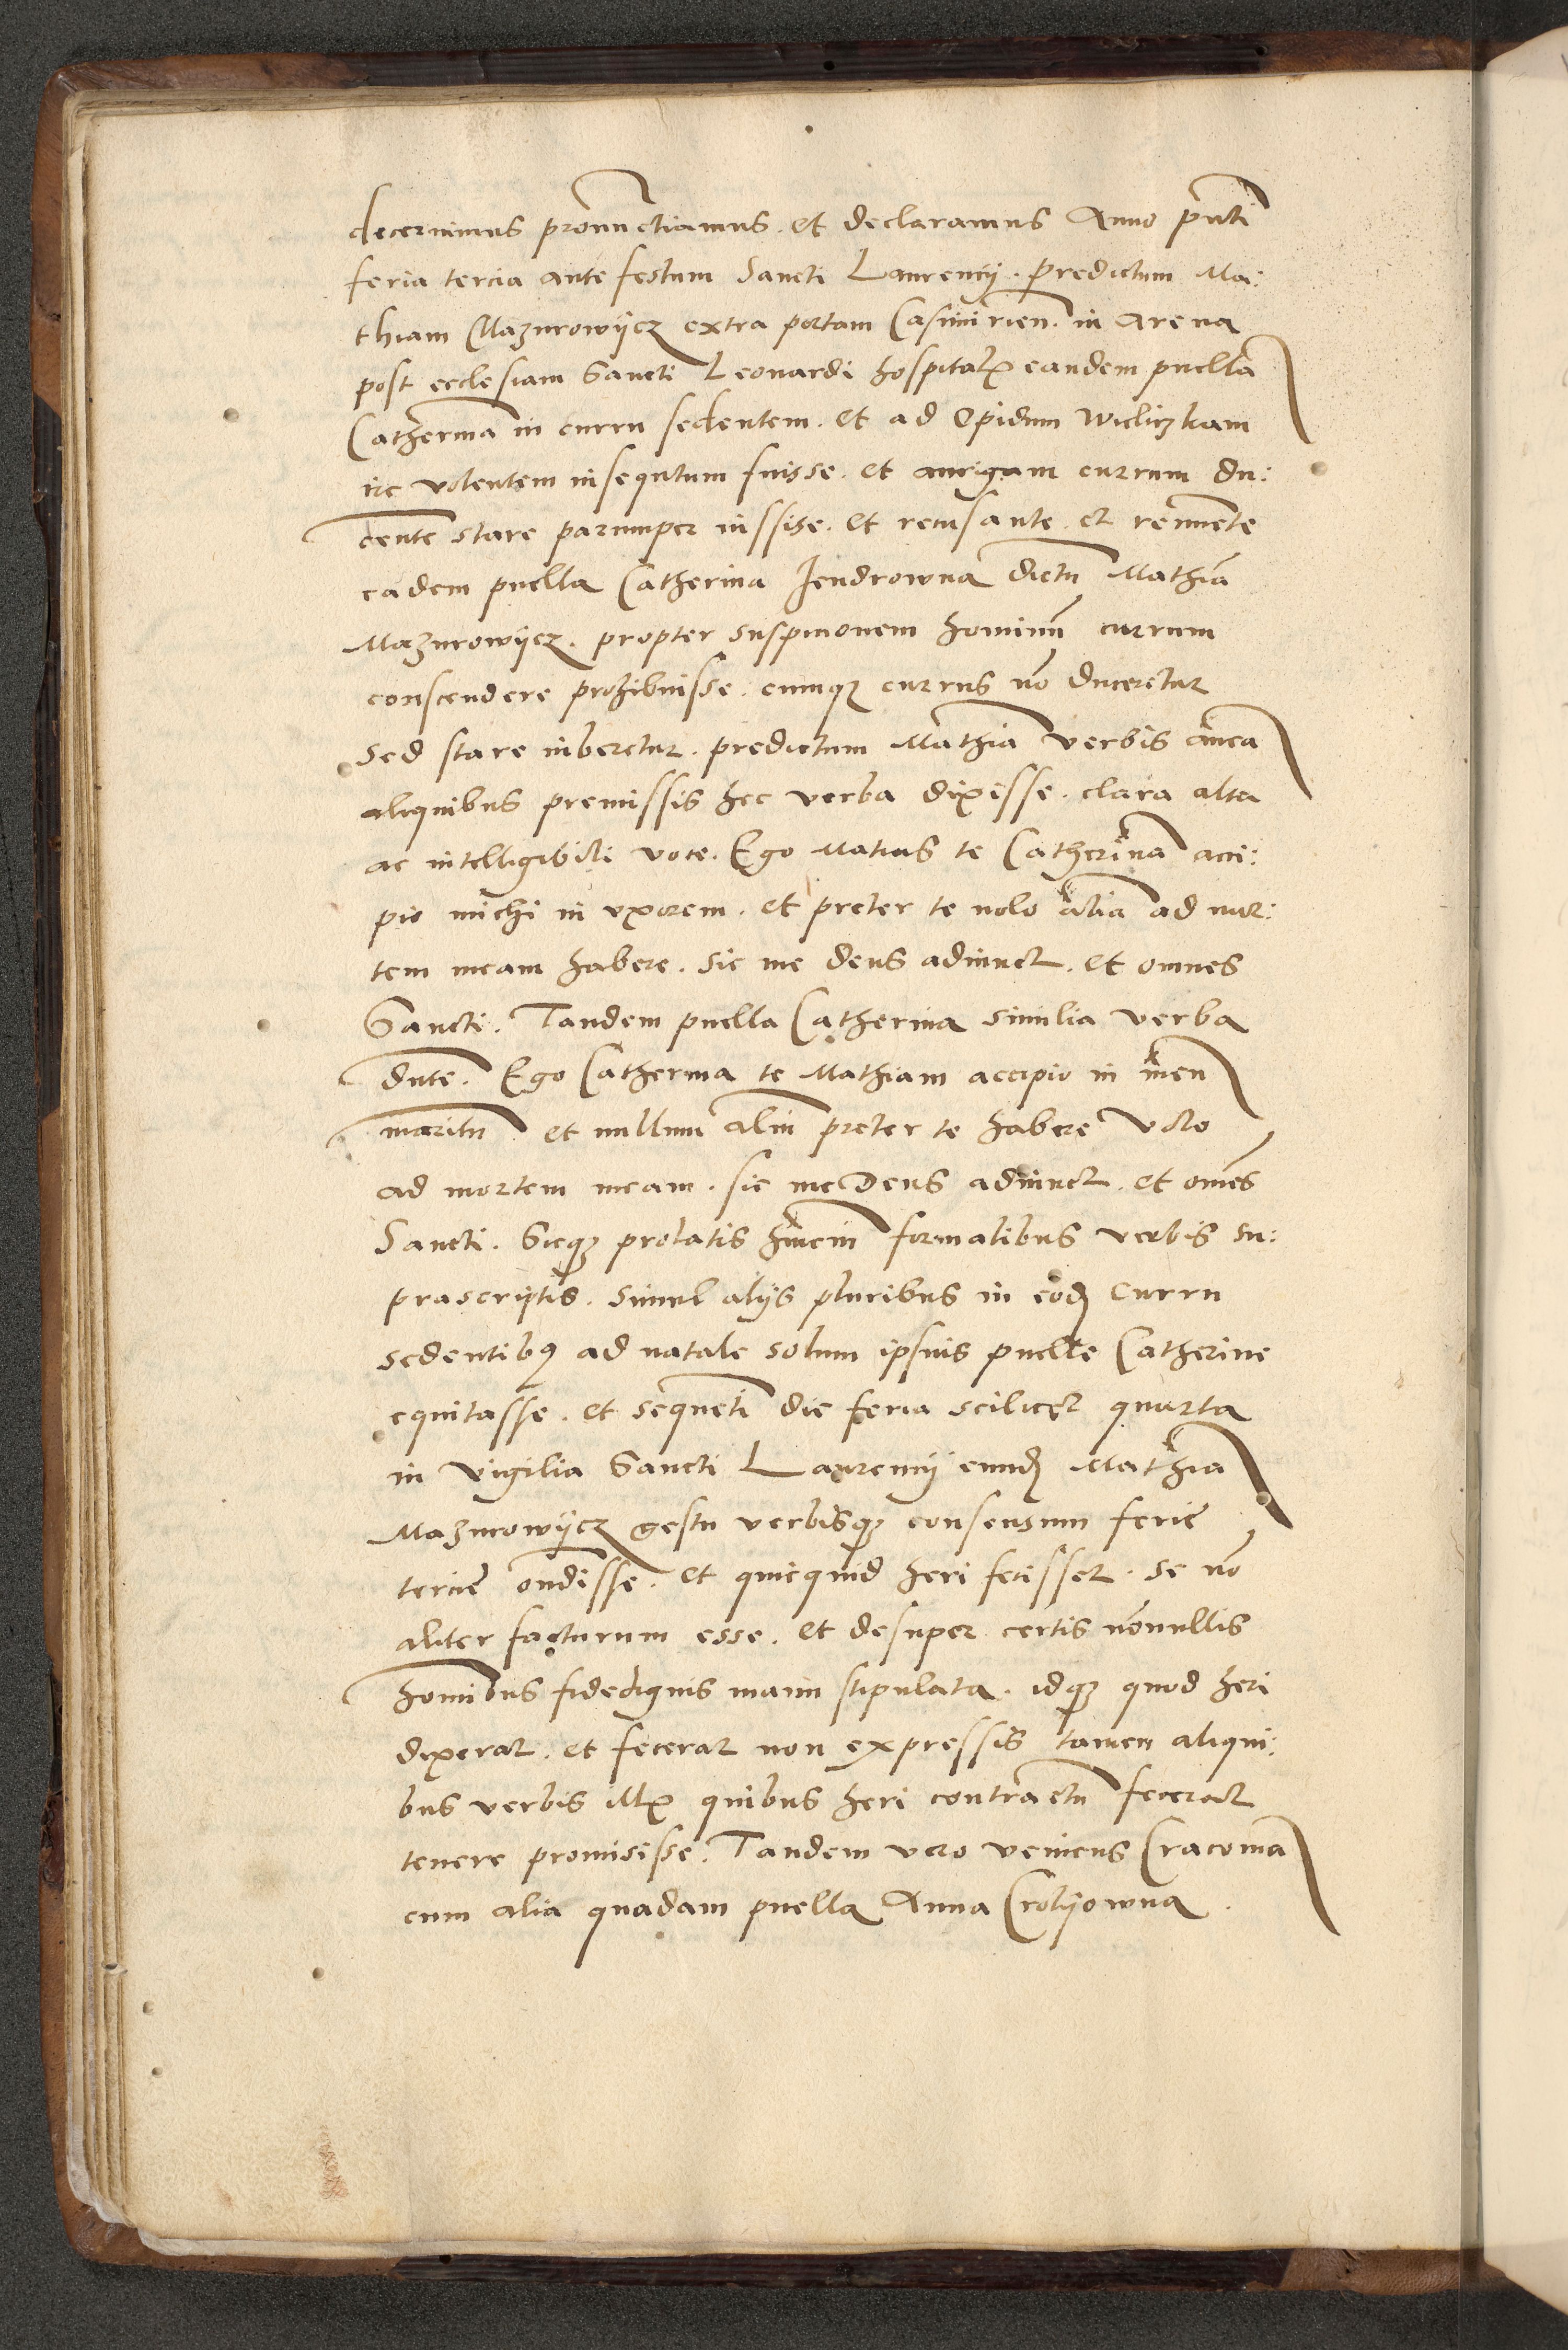 decernimus pronunctiamus. et declaramus Anno pñti
feria tercia ante festum Sancti Laurencij. predictum Ma:
thiam Mazurowijcz extra portam Casimirien. in arena
post ecclesiam Sancti Leonardi hospitalꝭ eandem puellã
Catherinã in curru sedentem. et ad Opidum Wieliczkam
ire volentem insequtum fuisse. et aurigam currum du:
centẽ stare parumper iussisse. et recusante et rennuẽte
eadem puella Catherina Jendrowna dictũ Mathiã
Mazurowijcz. propter suspicionem hominũ currum
conscendere prohibuisse. cumqȝ currus nõ duceretur
sed stare iuberetur. predictum Mathiã verbis añtea
aliquibus premissis hec verba dixisse. clara alta
ac intelligibili voce. Ego Matius te Catherinã acci:
pio michi in vxorem. et preter te nolo aliã ad mor:
tem meam habere. sic me deus adiuuet. et omnes
Sancti. Tandem puella Catherina similia verba
dñte. Ego Catherina te Mathiam accipio in meũ
maritũ et nullum aliũ preter te habere volo
ad mortem meam. sic me Deus adiuuet. et omẽs
Sancti. Sicqȝ prolatis hmõi formalibus verbis su:
prascriptis. simul alijs pluribus in eodẽ curru
sedentibꝰ ad natale solum ipsius puelle Catherine
equitasse. et sequẽti die feria scilicet quarta
in vigilia Sancti Laurencij eundẽ Mathiã
Mazurowijcz gestu verbisqȝ consensum ferie
tercie oñdisse. et quicquid heri fecisset. se nõ
aliter facturum esse. et desuper certis nõnullis
homĩbus fidedignis manu stipulata. idqȝ quod heri
dixerat. et fecerat non expressis tamen aliqui:
bus verbis illꝭ quibus heri contractũ fecerat
tenere promisisse. Tandem vero veniens Cracouiã
cum alia quadam puella Anna Crolijowna.